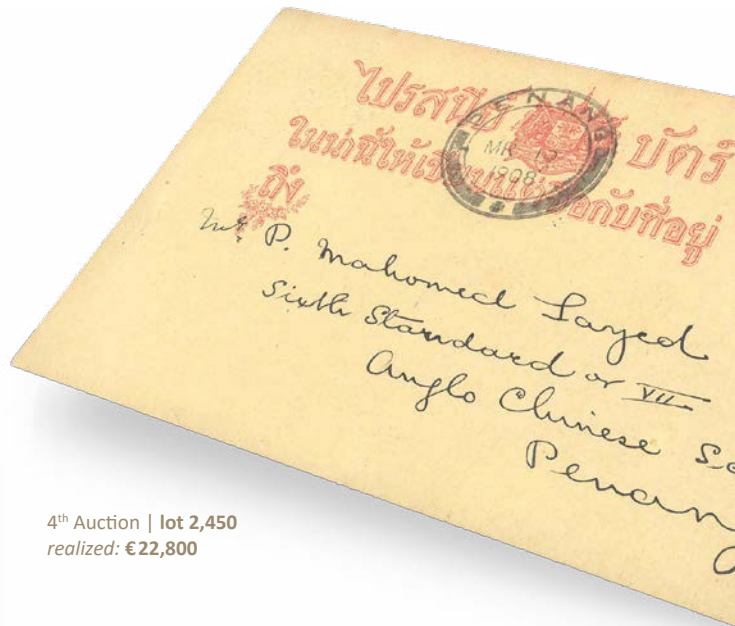 ไปรสนีย์ บัตร์
ในน่านี้ให้เขียน กับที่อยู่
ถึง
PENANG
MR
1908
Mr P. Mahomed Sayed
Sixth Standard or VII
Anglo Chinese Sc
Penang
4th Auction | lot 2,450
realized: €22,800